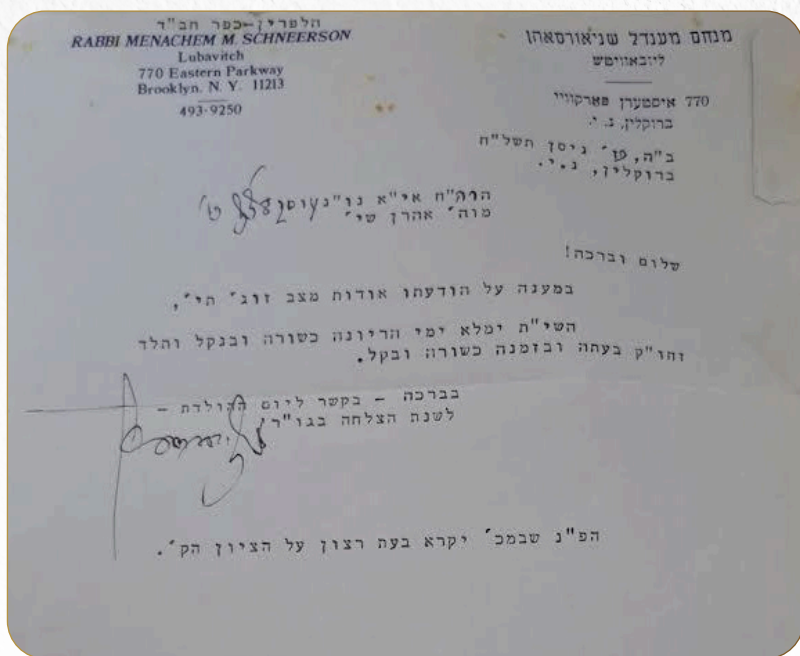 הלפרין-כפר חב"ד
RABBI MENACHEM M. SCHNEERSON
Lubavitch
770 Eastern Parkway
Brooklyn, N. Y. 11213
493-9250
מנחם מענדל שניאורסאהן
ליובאוויטש
770 איסטערן פארקוויי
ברוקלין, נ. י.
ב"ה, ניסן תשל"ח
ברוקלין, נ.י.
הרה"ח אי"א נו"נ עוסק
מוה' אהרן שי'
שלום וברכה!
במענה על הודעתו אודות מצב זוג' תי',
השי"ת ימלא ימי הריונה כשורה ובנקל ותלד
זחו"ק בעתה ובזמנה כשורה ובקל.
בברכה - בקשר ליום ההולדת -
לשנת הצלחה בגו"ר
הפ"נ שבמכ' יקרא בעת רצון על הציון הק'.